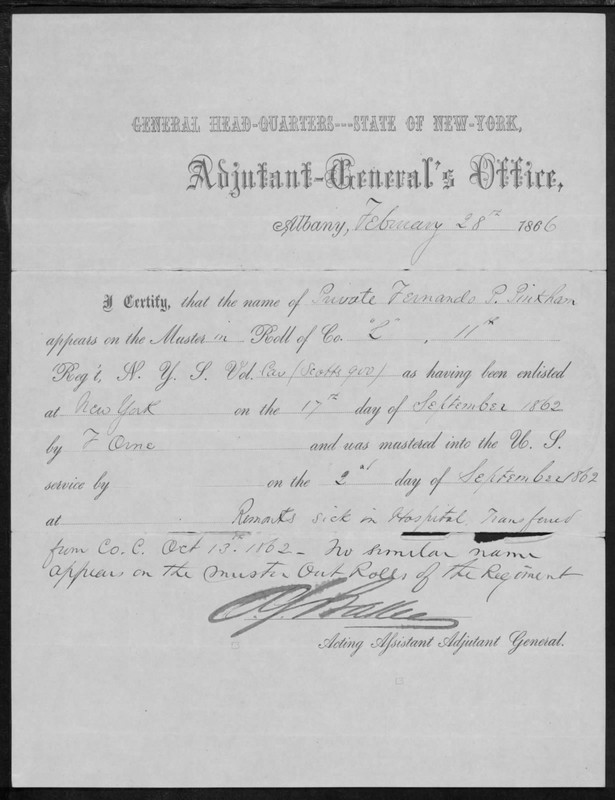 GENERAL HEAD-QUARTERS---STATE OF NEW-YORK,
Adjutant-General's Office,
Albany, February 28th 1866
I Certify, that the name of Private Fernando P. Pinkham
appears on the Muster in Roll of Co. "L", 11th
Reg't, N. Y. S. Vol. Cav (Scotts 900) as having been enlisted
at New York on the 17th day of September 1862
by F Orne and was mustered into the U. S.
service by on the 2nd day of September 1862
at Remarks sick in Hospital, Transferred
from Co. C. Oct 13th 1862 - No similar name
appears on the muster Out Rolls of the Regiment
Acting Assistant Adjutant General.